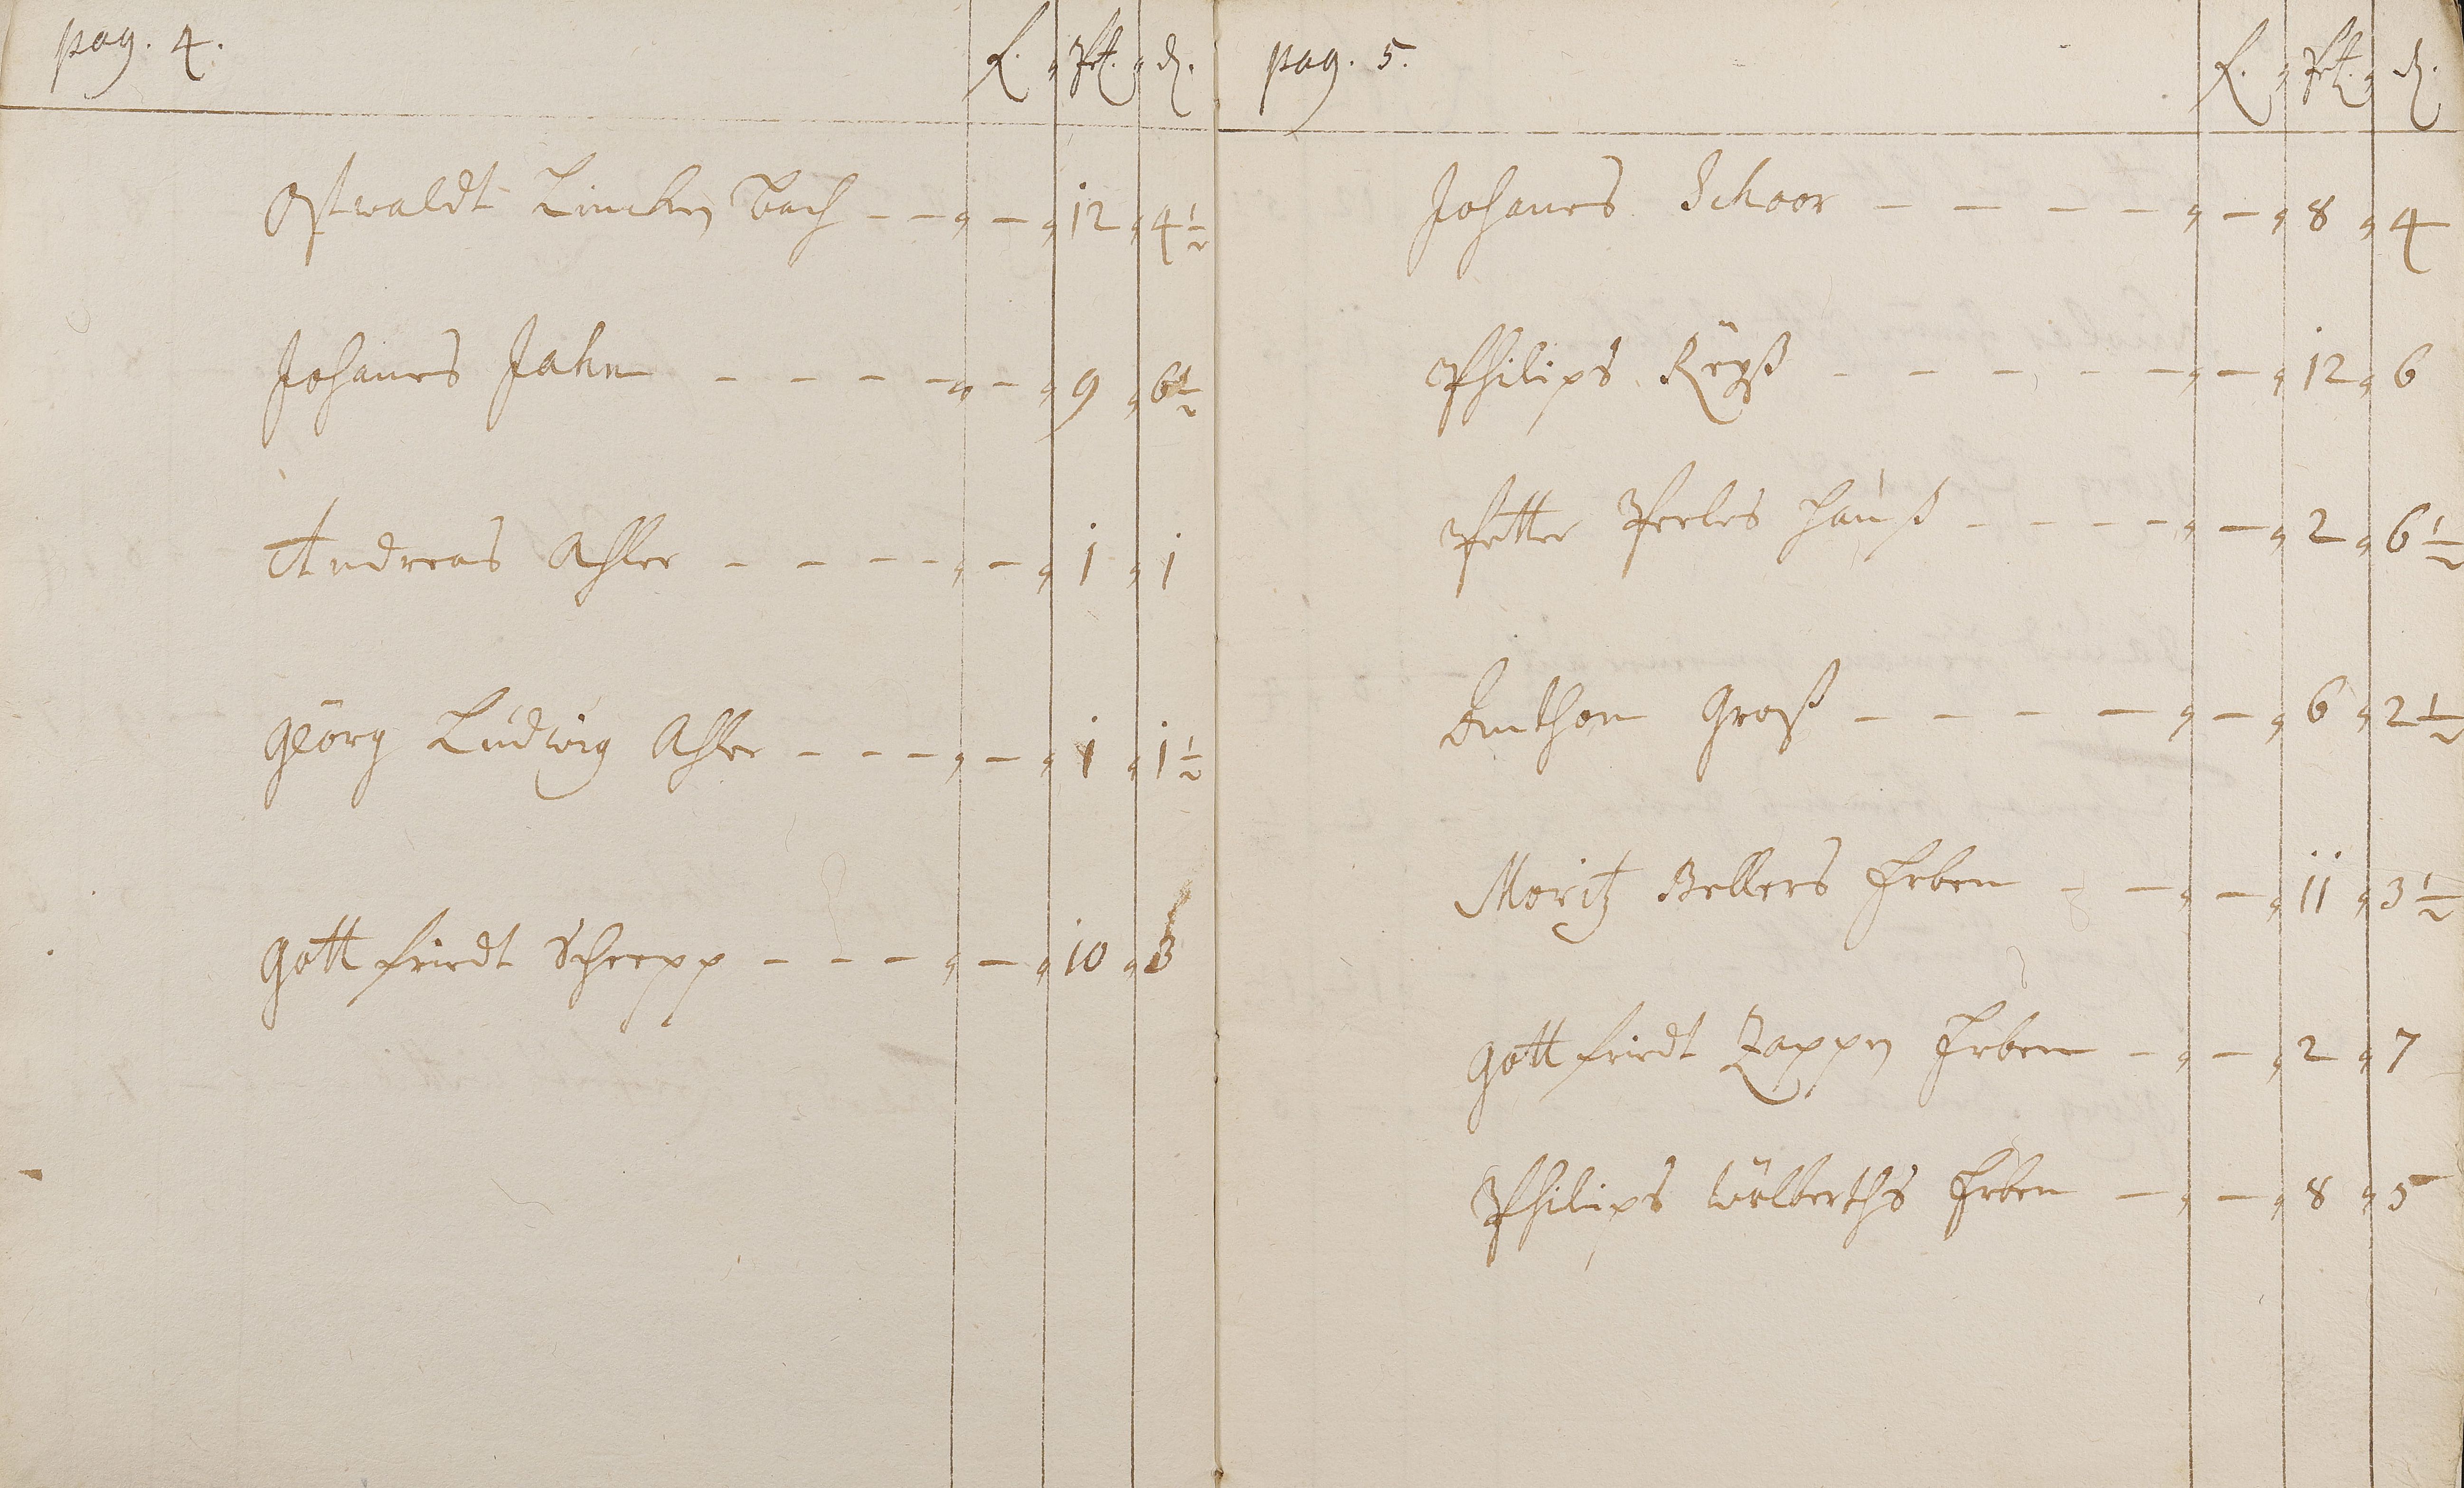 pag. 4. f. bt. d.
Ostwaldt Lincken Bach - - " - " 12 " 4½
Johanes Jahn - - - - " - " 9 " 6½
Andreas Ahler - - - - " - " 1 " 1
Georg Ludwig Ahler - - - " - " 1 " 1½
Gottfriedt Scheepp - - - " - " 10 " 3
pag. 5. f. bt. d.
Johanes Schoor - - - - " - " 8 " 4
Philips - - - - - " - " 12 " 6
Petter Perles Hauß - - - - " - " 2 " 6½
Anthon Groß - - - - " - " 6 " 2½
Moritz Bellers Erben - - " - " 11 " 3½
Gottfriedt Zappen Erben - " - " 2 " 7
Philips Wölberths Erben - " - " 8 " 5